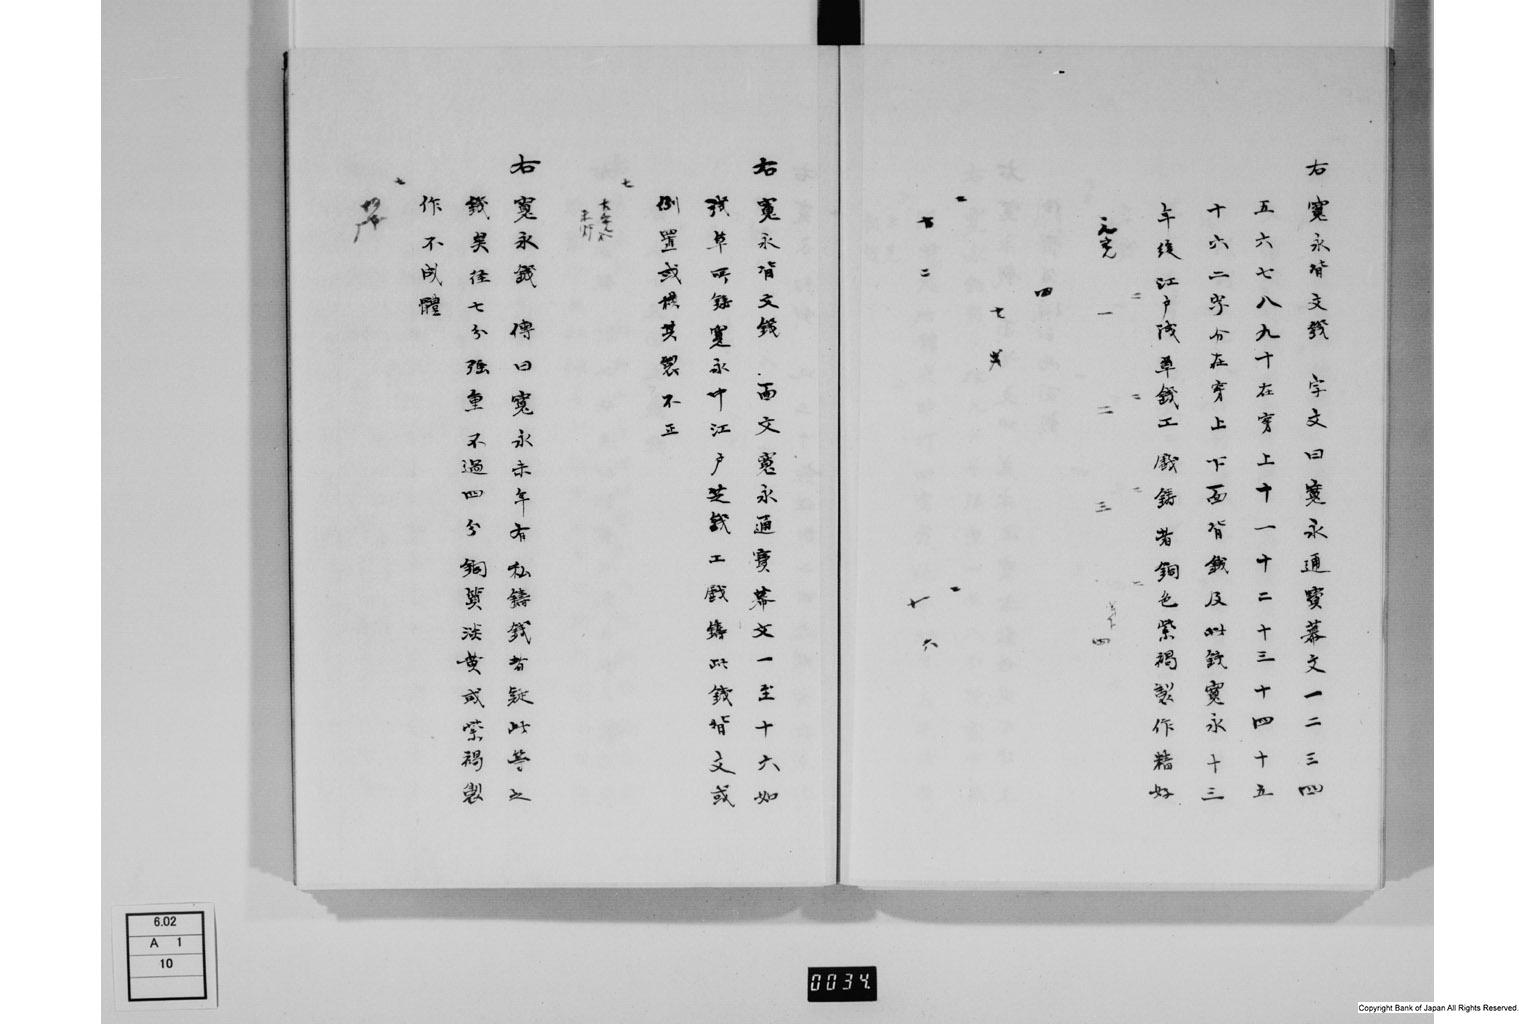 右寛永背文銭 字文曰寛永通寳幕文一二三四
五六七八九十在穿上十一十二十三十四十五
十六二字分在穿上下面背銭及此銭寛永十三
年後江戸浅草銭工戯鋳者銅色紫褐製作精好
一 二 三 四
四
七
十二
六
右寛永背文銭 面文寛永通寳幕文一至十六如
浅草所鋳寛永中江戸芝銭工戯鋳此銭背文或
倒置或横其製不正
七
右寛永銭 傳曰寛永末年有私鋳銭者疑此等之
銭矣径七分強重不過四分銅質淡黄或紫褐製
作不成體
七
6.02
A 1
10
0034
Copyright Bank of Japan All Rights Reserved.